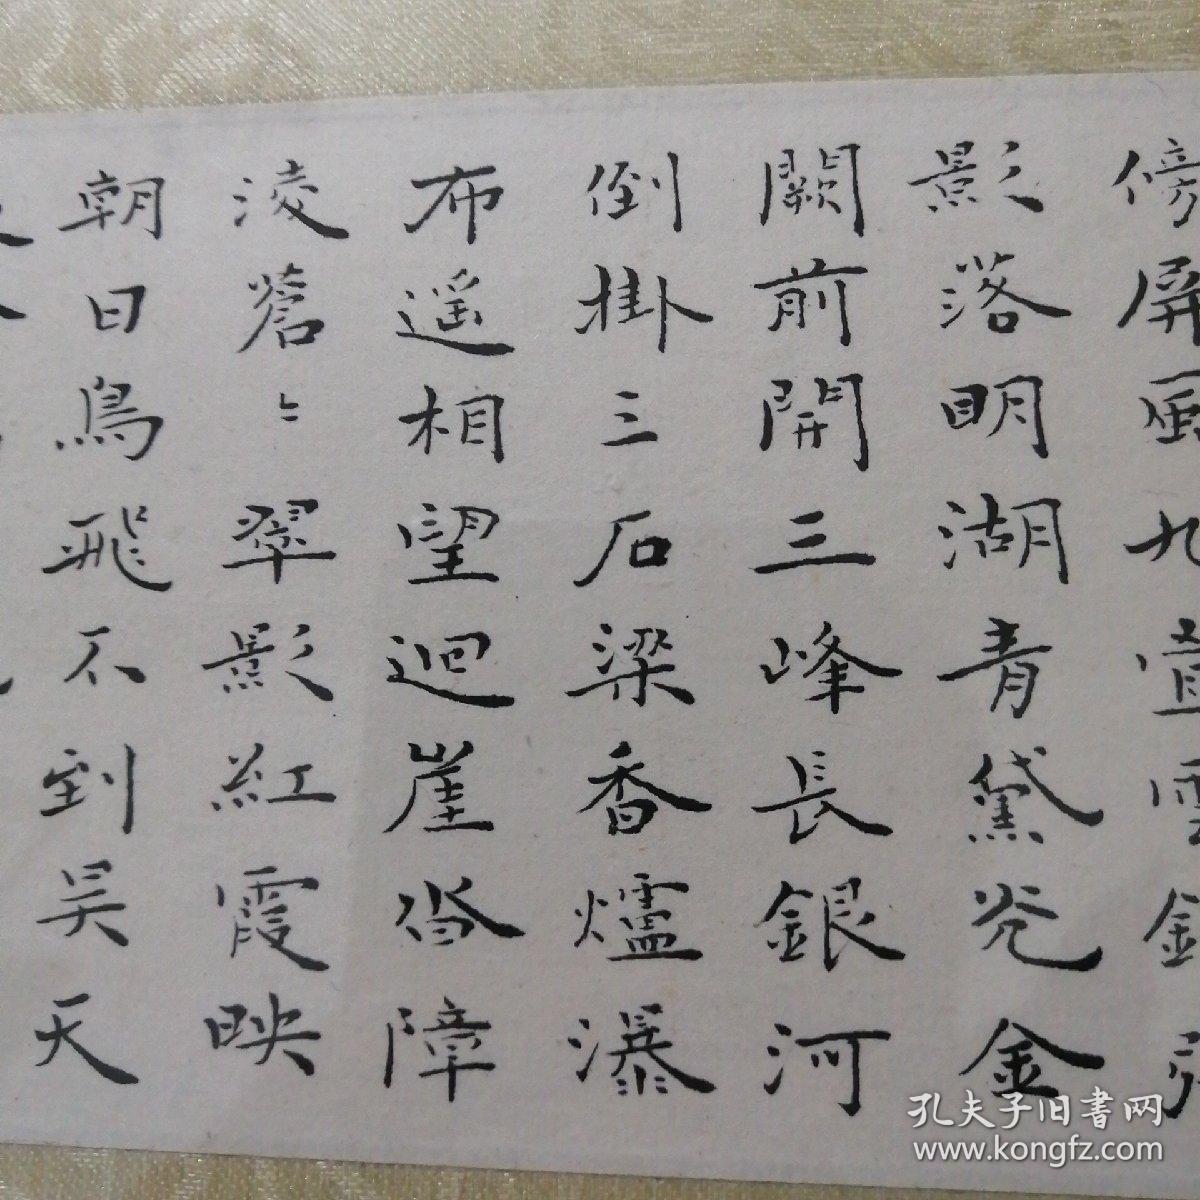 傍屏風九疊雲錦張
影落明湖青黛光金
闕前開三峰長銀河
倒掛三石梁香爐瀑
布遥相望迴崖沓障
凌蒼〻翠影紅霞映
朝日鳥飛不到吴天
孔夫子旧書网
www.kongfz.com